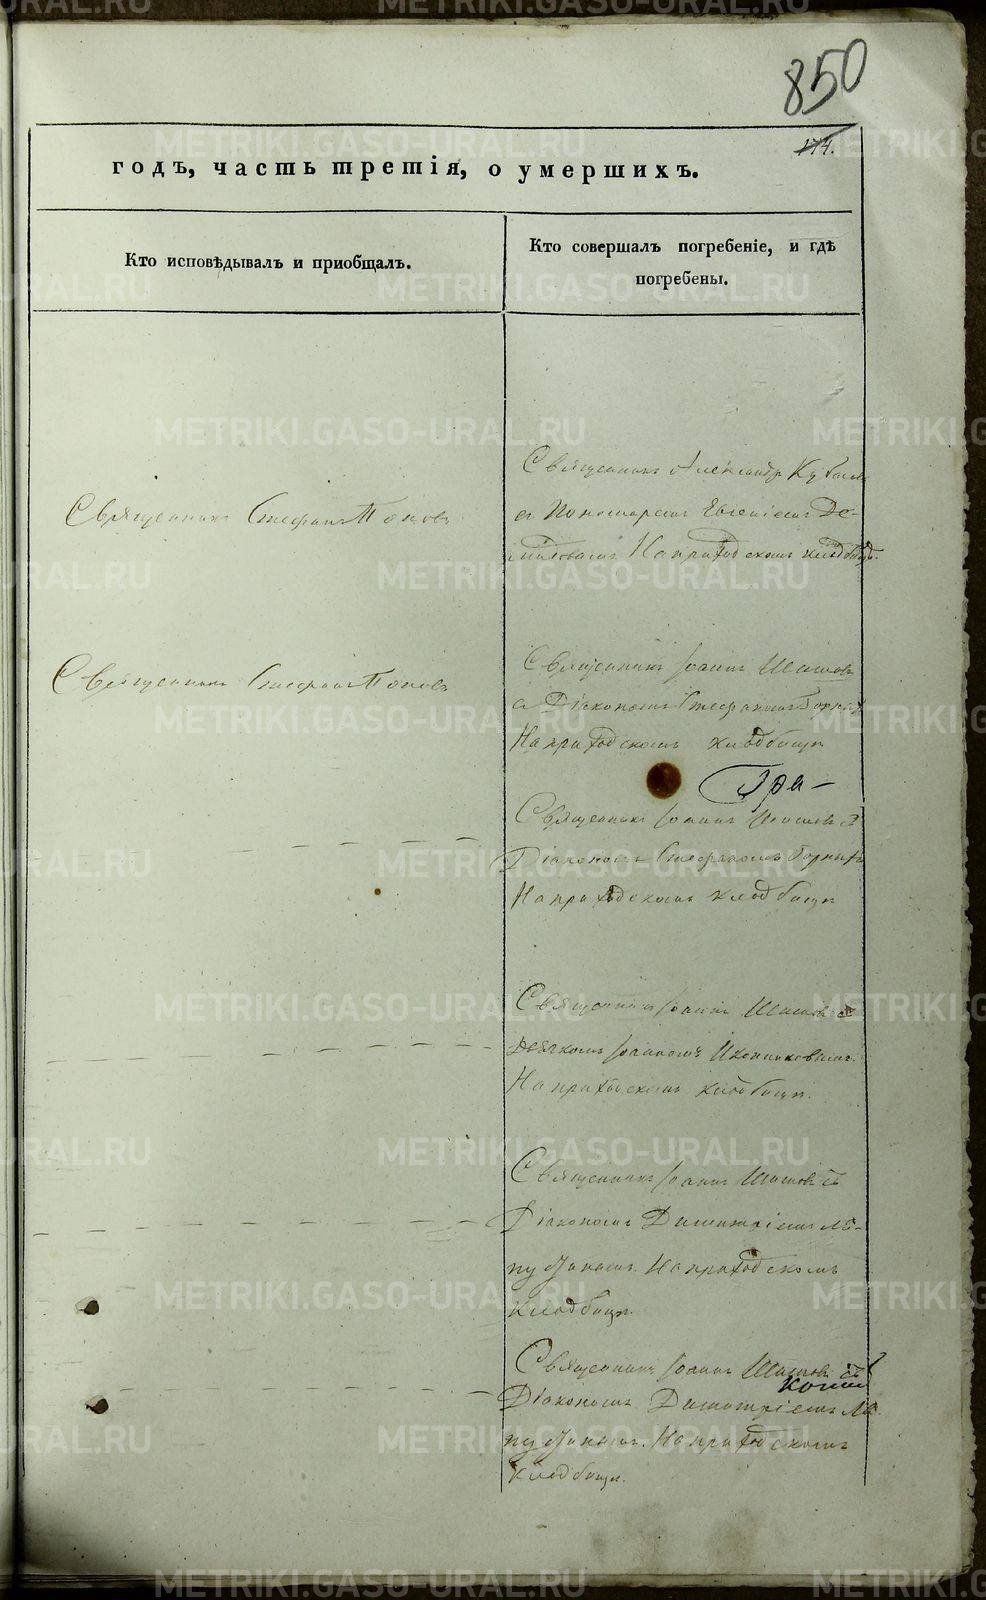 850
174.
годъ, часть третія, о умершихъ.
Кто исповѣдывалъ и пріобщалъ.
Кто совершалъ погребеніе, и гдѣ
погребены.
Священникъ Александръ
Священникъ Стефанъ Поповъ
съ Пономаремъ Евгеніемъ Де-
На приходскомъ кладбищѣ.
Священникъ Стефанъ Поповъ
Священникъ Іоаннъ Шишовъ
съ Діакономъ Стефаномъ
На приходскомъ кладбищѣ
Гра-
Священникъ Іоаннъ Шишовъ съ
Діакономъ Стефаномъ
На приходскомъ кладбищѣ
Священникъ Іоаннъ Шишовъ съ
Дьячкомъ Іоанномъ Иконниковымъ.
На приходскомъ кладбищѣ.
Священникъ Іоаннъ Шишовъ съ
Діакономъ Димитріемъ Ла-
На приходскомъ
кладбищѣ.
Священникъ Іоаннъ Шишовъ съ
Діакономъ Димитріемъ Ла-
На приходскомъ
кладбищѣ.
METRIKI.GASO-URAL.RU